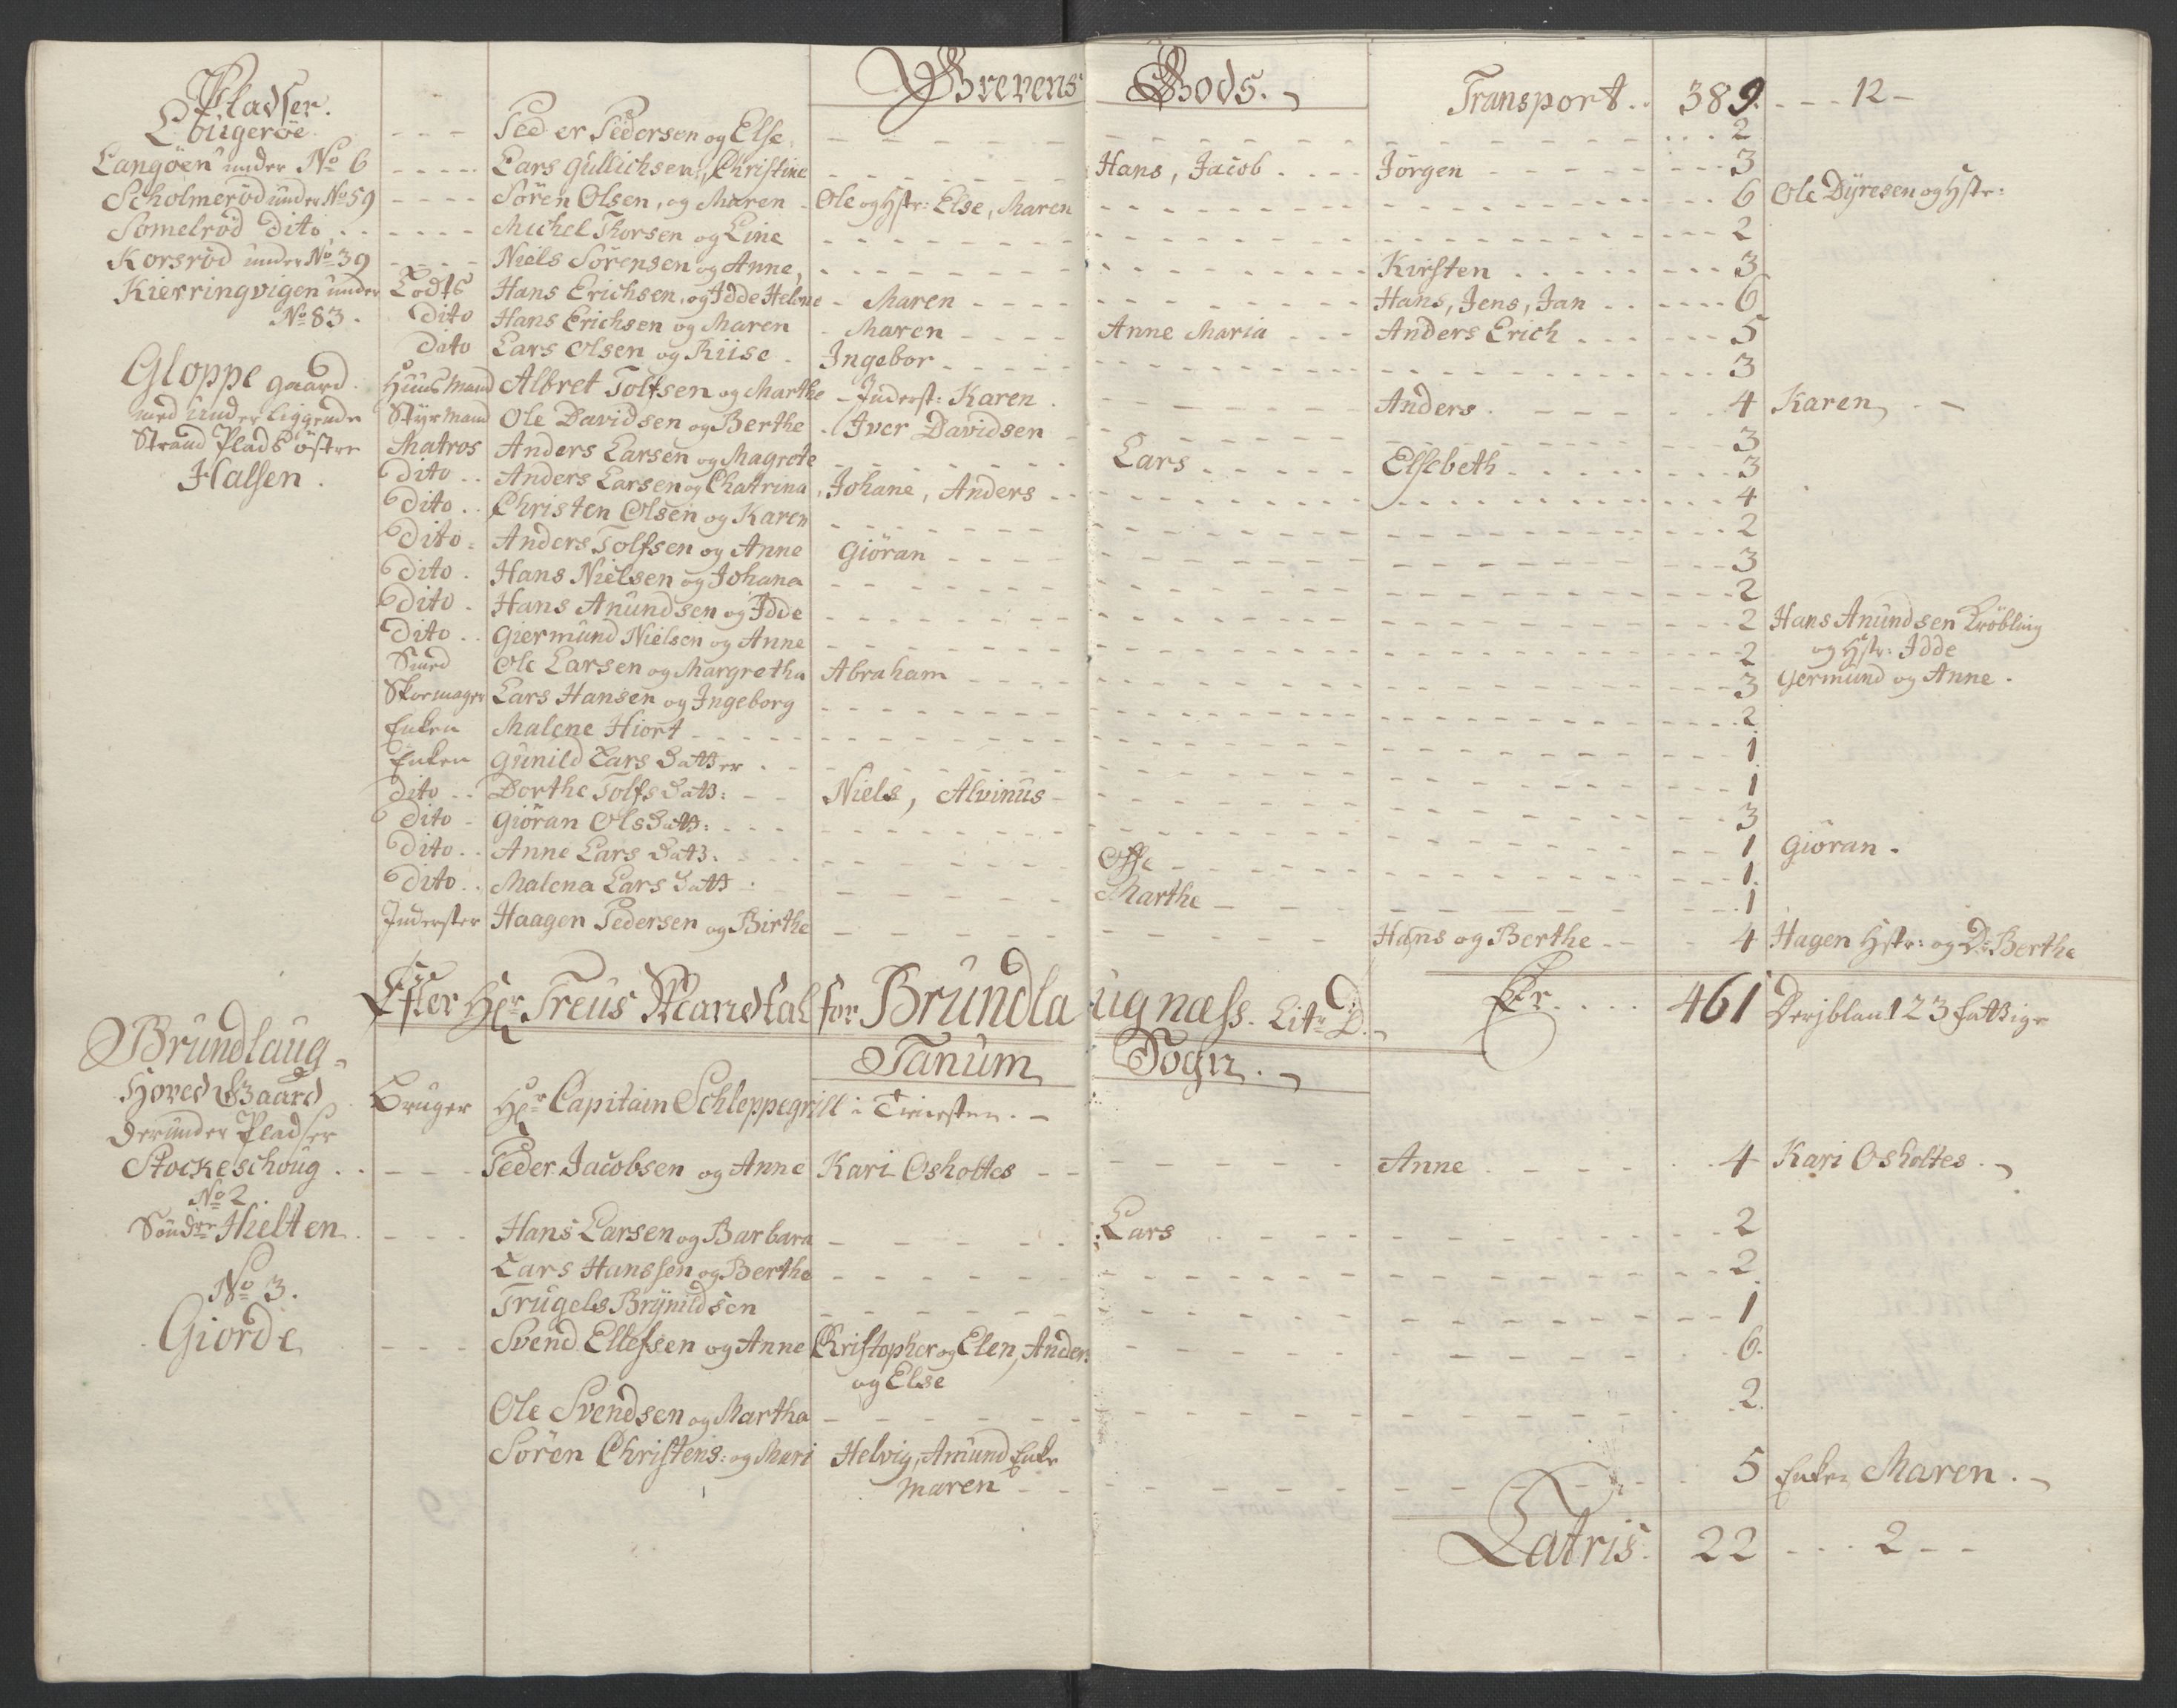 Pladser. Grevens Gods. Transport.. 389. - - - 12 -
Lougeröe - - - Peder Pedersen og Else, - - - 2
Langöen under No 6 - - - - Lars Gullichsen, Christine - - - Hans, Jacob . . . Jörgen - - - 3
Scholmeröd under No 59 - - - - Sören Olsen, og Maren - Ole og Hstr: Else, Maren - - - 6 Ole Dyresen og Hstr:
Somelröd Dito . . - - - - Michel Thorsen og Line - - - 2
Korsröd under No 39 - - - - Niels Sörensen og Anne, - - - Kirsten . . . 3
Kierringvigen under Lodts Hans Erichsen, og Idde Helene - Maren - - - Hans, Jens, Jan . . . 6
No 83. Dito Hans Erichsen og Maren - Maren - - - Anne Maria - - Anders Erich . . . 5
Dito Lars Olsen og Riise - Ingebor - - - 3
Gloppe gaard. Huusmand Albret Tolfsen og Marthe - Inderst: Karen . - - - Anders. - - - 4 Karen, - -
med underliggende Styrmand Ole Davidsen og Berthe . Iver Davidsen - - - 3
Strand Plads östre Matros Anders Larsen og Magrete - - - Lars . . . Elsebeth . . . 3
Halsen. Dito .. Anders Larsen og Chatrina, Johane, Anders . . - - - 4
Dito .. Christen Olsen og Karen - - - 2
Dito - Anders Tolfsen og Anne Giöran - - - 3
Dito . Hans Nielsen og Johana - - - 2
Dito - Hans Anundsen og Idde - - - 2 Hans Anundsen Kröbling
Dito .. Giermund Nielsen og Anne - - - 2 og Hstr: Idde
Smed Ole Larsen og Margretha Abraham - - - 3 Germund og Anne.
Skomager Lars Hansen og Ingeborg - - - 2
Enken Malene Hiort - - - 1
Enken Gunild Lars Datter . - - - 1
Dito .. Dorthe Tolfs Datt: - - Niels, Alvinus - - - 3
Dito - Giöran Ols Datt: - - - 1 Giöran.
Dito .. Anne Lars Datt. - - - Offe - - - 1
Dito .. Malena Lars Datt : - - - Marthe - - - 1
Inderster Haagen Pedersen og Birthe - - - Hans og Berthe - - 4 Hagen Hstr: og Dr Berthe
Efter Hr Treus Mandtal for Brundlaugnæss. Litr D. Er . . . 461 Derjblant 23 fattige
Brundlaug- Tanum Sogn.
Hoved Gaard Bruger Hr Capitain Schleppegrill i Tienesten. -
Derunder Pladser
Stockeschoug . . - - - Peder Jacobsen og Anne Kari Osholtes - - - Anne - - - 4 Kari Osholtes.
No 2.
Söndre Hielten - - - Hans Larsen og Barbara - - - Lars - - - 2
Lars Hanssen og Berthe - - - 2
No 3. Trugels Brynildsen - - - 1
Giorde - - - Svend Ellefsen og Anne Christopher og Elen, Ander: - - - 6.
og Else
Ole Svendsen og Martha - - - 2.
Sören Christens: og Mari Helvig, Amund Enke - - - 5 Enken Maren. -
Maren - -
Latris. 22 - - - 2 - -